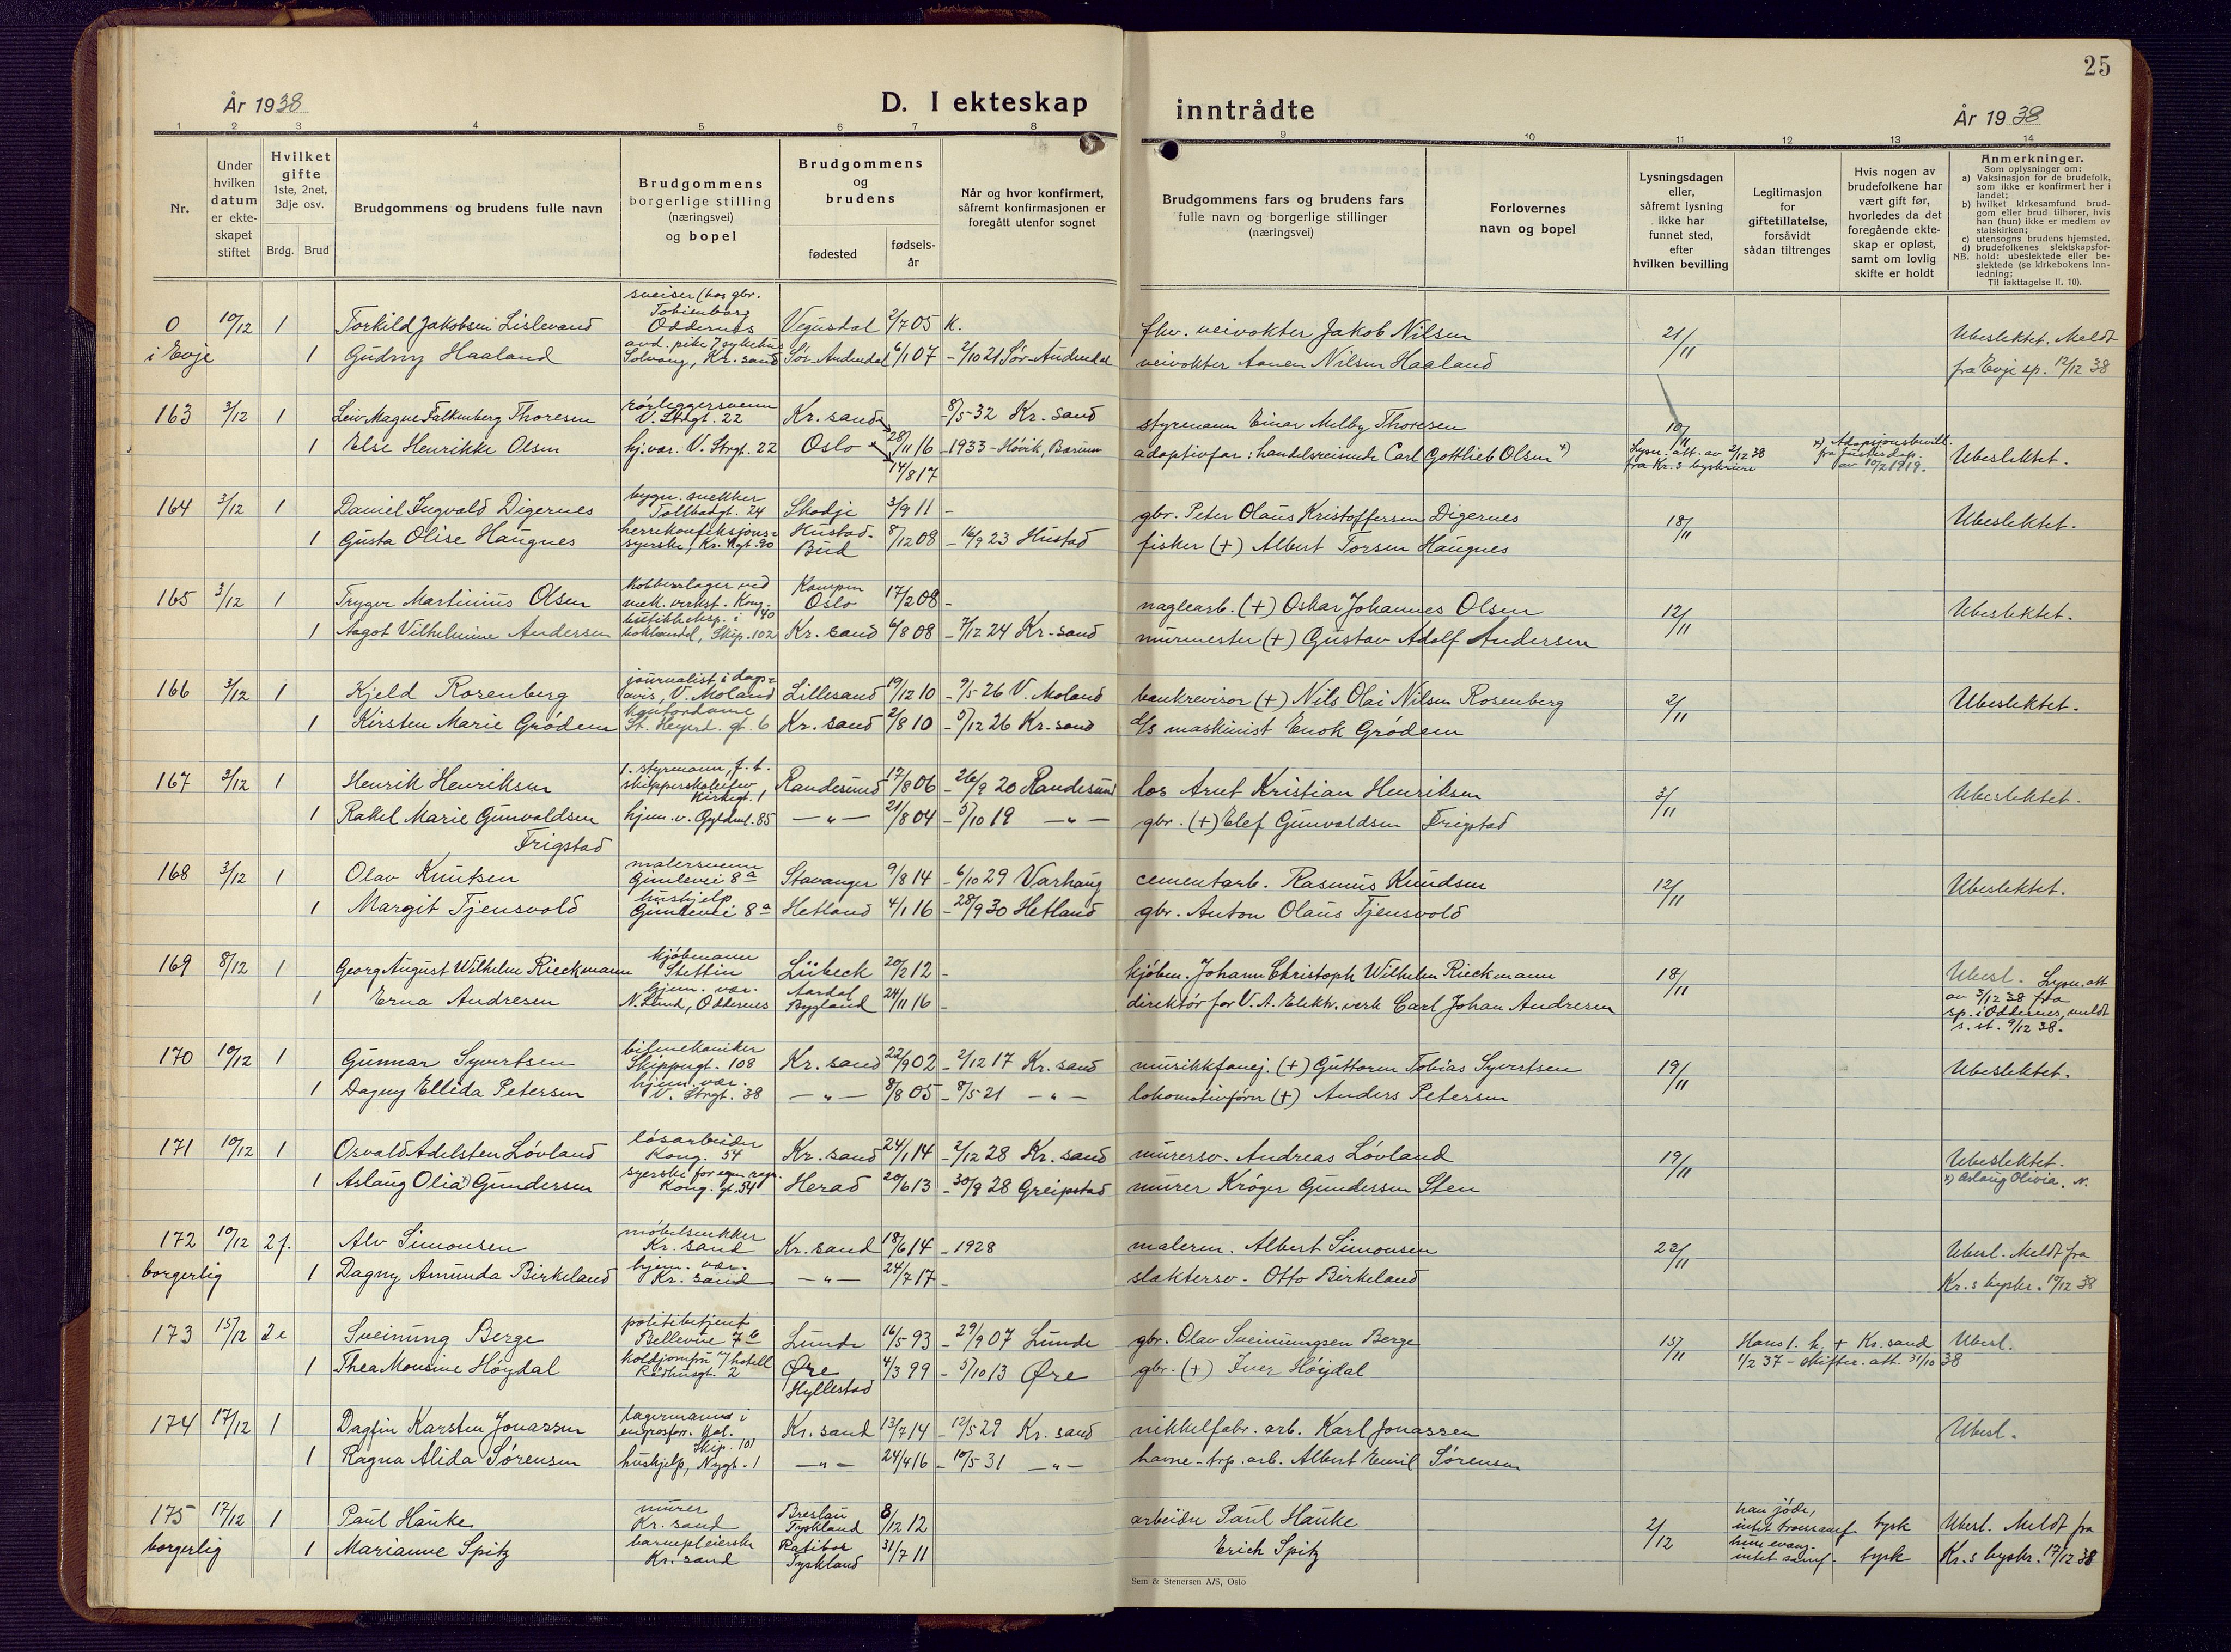 25
År 1938
D. I ekteskap inntrådte
År 1938
1 2 3 4 5 6 7 8 9 10 11 12 13 14
Nr.
Under hvilken datum er ekte-skapet stiftet
Hvilket gifte 1ste, 2net, 3dje osv.
Brdg. Brud
Brudgommens og brudens fulle navn
Brudgommens borgerlige stilling (næringsvei) og bopel
Brudgommens og brudens
fødested
fødsels-år
Når og hvor konfirmert, såfremt konfirmasjonen er foregått utenfor sognet
Brudgommens fars og brudens fars fulle navn og borgerlige stillinger (næringsvei)
Forlovernes navn og bopel
Lysningsdagen eller, såfremt lysning ikke har funnet sted, efter hvilken bevilling
Legitimasjon for giftetillatelse, forsåvidt sådan tiltrenges
Hvis nogen av brudefolkene har vært gift før, hvorledes da det foregående ekte-skap er opløst, samt om lovlig skifte er holdt
Anmerkninger.
Som oplysninger om:
a) Vaksinasjon for de brudefolk, som ikke er konfirmert her i landet;
b) hvilket kirkesamfund brud-gom eller brud tilhører, hvis han (hun) ikke er medlem av statskirken;
c) utensogns brudens hjemsted.
d) brudefolkenes slektskapsfor-hold: ubeslektede eller be-slektede (se kirkebokens inn-ledning;
NB. Til iakttagelse II. 10).
0 10/12 1 Torkild Jakobsen Lislevand sveiser (hos gbr. Tobienborg Oddernes Vegusdal 2/7 05 K. fhv. veivokter Jakob Nilsen 21/11 Ubeslektet. Meldt
i Evje 1 Gudny Haaland avd. pike Solvang, Kr.sand Sør-Audnedal 6/1 07 - 2/10 21 Sør-Audnedal veivokter Aanen Nilsen Haaland fra Evje sp. 12/12 38
163 3/12 1 Leiv Magne Falkenberg Thoresen rørleggersvenn V. Strgt. 22 Kr.sand 8/5-32 Kr.sand styrmann Einar Melby Thoresen 10/11
1 Else Henrikke Olsen hj.vær. V. Strgt. 22 Oslo 28/11 16 - 1933 - Høvik, Bærum adoptivfar: handelsreisende Carl Gottlieb Olsen x) Lysn. att. av 2/12 38 fra Kr.s byskrivers x) Adopsjonsbevill. fra justisdep. av 10/2 1919. Ubeslektet.
14/8 17
164 3/12 1 Daniel Ingvald Digernes bygn. snekker Tollbodgt. 24 Skodje 3/9 11 - gbr. Peter Olaus Kristoffersen Digernes 18/11 Ubeslektet.
1 Gusta Olise Haugnes herrekonfeksjons-syerske, Kr. 4 gt. 90 Hustad-Bud 8/12 08 - 16/9 23 Hustad fisker (+) Albert Torsen Haugnes
165 3/12 1 Trygve Martinius Olsen kobberslager ved mek. verkst. Kong. 40 Kampen Oslo 17/2 08 - naglearb. (+) Oskar Johannes Olsen 12/11 Ubeslektet.
1 Aagot Vilhelmine Andersen butikkeksp. i bokhandel, Skip. 102 Kr.sand 6/8 08 - 7/12 24 Kr-sand murmester (+) Gustav Adolf Andersen
166 3/12 1 Kjeld Rosenberg journalist, i dags-avis, V. Moland Lillesand 19/12 10 - 9/5 26 V. Moland bankrevisor (+) Nils Olai Nilsen Rosenberg 2/11 Ubeslektet.
1 Kirsten Marie Grødem kontordame St. Heyerd. gt. 6 Kr.sand 2/8 10 - 5/12 26 Kr-sand d/s maskinist Enok Grødem
167 3/12 1 Henrik Henriksen 1. styrmann, f.t. skipperskoleelev, Kirkegt. 1 Randesund 17/8 06 - 26/9 20 Randesund los Arnt Kristian Henriksen 3/11 Ubeslektet.
1 Rakel Marie Gunvaldsen Frigstad hjem. v. Gyldenl. 85 -"- 21/8 04 - 5/10 19 -"- gbr. (+) Elef Gunvaldsen Frigstad
168 3/12 1 Olav Knutsen malersvenn Gimlevei 8a Stavanger 9/8 14 - 6/10 29 Varhaug cementarb. Rasmus Knudsen 12/11 Ubeslektet.
1 Margit Tjensvold hushjelp Gimlevei 8a Hetland 4/1 16 - 28/9 30 Hetland gbr. Anton Olaus Tjensvold
169 8/12 1 Georg August Wilhelm Rieckmann kjøbmann Stettin Lübeck 20/2 12 - kjøbm. Johann Christoph Wilhelm Rieckmann 18/11 Ubesl. Lysn. att
1 Erna Andresen hjem. vær. N. Lund, Oddernes Aardal Bygland 24/11 16 - direktør for V. A. Elektr. verk Carl Johan Andresen av 3/12 38 fra sp. i Oddernes, meldt s. st. 9/12 38.
170 10/12 1 Gunnar Syvertsen bilmekaniker Skippergt. 108 Kr.sand 22/9 02 - 2/12 17 Kr.sand musikkfanej. (+) Guttorm Tobias Syvertsen 19/11 Ubeslektet.
1 Dagny Ellida Petersen hjem. vær. V. Strgt. 38 -"- 8/8 05 - 8/5 21 -"- lokomotivfører (+) Anders Petersen
171 10/12 1 Osvald Adelsten Løvland løsarbeider Kong. 54 Kr.sand 24/1 14 - 2/12 28 Kr.sand murersv. Andreas Løvland 19/11 Ubeslektet.
1 Aslaug Olia x) Gundersen syerske for egen regn. Kong. gt. 54 Herad 20/6 13 - 30/9 28 Greipstad murer Krøger Gundersen Sten x) Aslaug Olivia. N.
172 10/12 2 f. Alv Simonsen møbelsnekker Kr.sand Kr.sand 18/6 14 - 1928 malerm. Albert Simonsen 23/11 Ubesl. Meldt fra
borgerlig 1 Dagny Amunda Birkeland hjem. vær. Kr.sand -"- 24/7 17 - slaktersv. Otto Birkeland Kr.s byskr. 10/12 38
173 15/12 2e Sveinung Berge politibetjent Bellevue 7b Lunde 16/5 93 - 29/9 07 Lunde gbr. Olav Sveinungsen Berge 15/11 Hans 1. h. + Kr.sand Ubesl.
1 Thea Monsine Høydal koldjomfru v/ hotell Rådhusgt. 2 Øre Hyllestad 4/3 99 - 5/10 13 Øre gbr. (+) Iver Høydal 1/2 37 - skifter. att. 31/10 38
174 17/12 1 Dagfin Karsten Jonassen lagermann i engrosforr. Skip. 101 Kr.sand 13/7 14 - 12/5 29 Kr.sand nikkelfabr. arb. Karl Jonassen Ubesl.
1 Ragna Alida Sørensen hushjelp, Nygt. 1 -"- 24/4 16 - 10/5 31 -"- havne-trp. arb. Albert Emil Sørensen
175 17/12 1 Paul Hauke murer Kr.sand Breslau Tyskland 8/12 12 arbeider Paul Hauke 2/12 han jøde, intet trossamf. tysk Ubesl. Meldt fra
borgerlig 1 Marianne Spitz barnepleierske Kr.sand Ratibor Tyskland 31/7 11 Erich Spitz hun evang. intet samf. tysk Kr.s byskr. 17/12 38
Sem & Stenersen A/S, Oslo